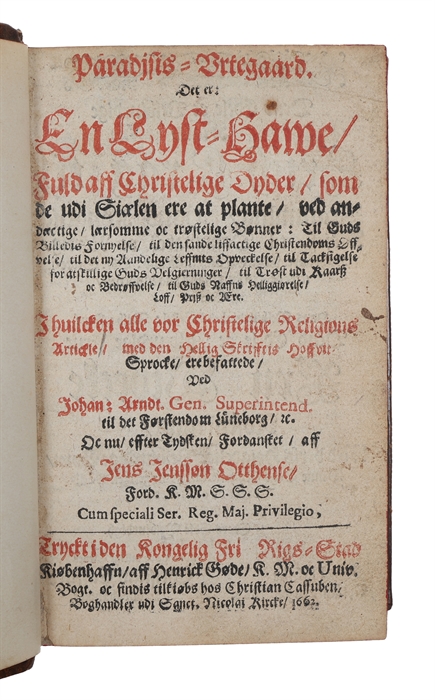 Paradjsis-Vrtegaard.
Det er:
En Lyst-Hawe/
Fuld aff Christelige Dyder/ som
de udi Siælen ere at plante/ ved an-
dæctige/ lærsomme oc trøstelige Bønner: Til Guds
Billedis Fornyelse/ til den sande liffactige Christendoms Øff-
velse/ til det ny Aandelige Leffnits Opveckelse/ til Tacksigelse
for atskillige Guds Velgierninger/ til Trøst udi Kaarß
oc Bedrøffvelse/ til Guds Naffns Helliggiørelse/
Loff/ Prjß oc Ære.
I huilcken alle vor Christelige Religions
Artickle/ med den Hellig Skrifftis Hoffvit/
Sprocke/ ere befattede/
Ved
Johan: Arndt. Gen. Superintend.
til det Førstendom Lüneborg/ &c.
Oc nu/ effter Tydsken/ Fordansket/ aff
Jens Jenssøn Otthense/
Ford. K. M. S. S. S.
Cum speciali Ser. Reg. Maj. Privilegio,
Tryckt i den Kongelig Fri Rigs-Stad
Kiøbenhaffn/ aff Henrick Gøde/ K. M. oc Univ.
Bogt. oc findis til kiøbs hos Christian Cassuben/
Boghandler udi Sanct. Nicolai Kircke/